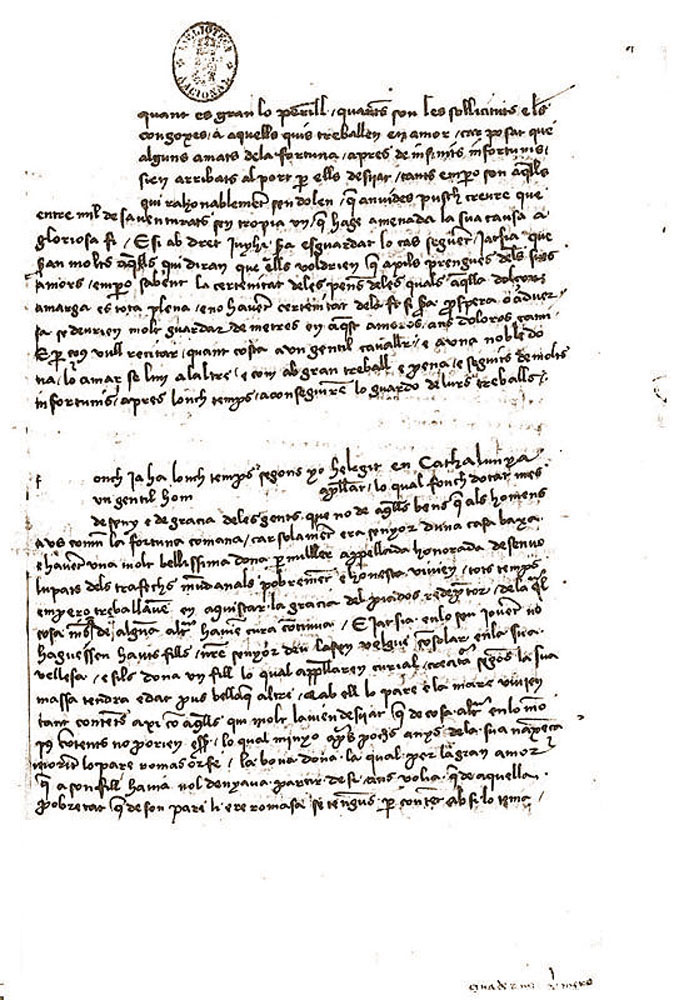 BIBLIOTECA NACIONAL
quant es gran lo perill / quants son les sollicituts e les
congoxes / a aquells quis treballen en amor / car posat que
alguns amats dela fortuna / apres de infinits infortunis /
sien arribats al port per ells desijat / tants empero son aquells
qui rahonablement sen dolen / que anvides pusch creure que
entre mil desaventurats sen tropia un / que haie amenada la sua causa a
gloriosa fi / E si ab dret juyhi sera esguardat lo cas seguent / jatsia que
seran molts aquells qui diran que ells voldrien que axils prengues dels seus
amors / empero sabent la certenitat deles penes deles quals aquella dolçor
amarga es tota plena / e no havent certenitat dela fi si sera prospera o adver
sa se deurien molt guardar de metres en aquest amoros ans doloros cami /
E per ço yo vull recitar / quant costa a un gentil cavaller / e a una noble do
na / lo amar se lun alaltre / e com ab gran treball e pena / e seguits de molts
infortunis / apres lonch temps / aconseguiren lo guardo de lurs treballs /.
f onch ja ha lonch temps segons yo he legit en Cathalunya
un gentil hom apellat / lo qual fonch dotat mes
de seny e de gracia deles gents que no de aquells bens que als homens
avs comu la fortuna comana / car solament era senyor duna casa baxa
e havent una molt bellissima dona per muller appellada honorada desenvo
lupats dels trafechs mundanals pobrement e honesta vivien / tots temps
empero treballaven en aquistar la gracia del piados redemptor / dela qual
cosa mes de alguna altra havien cura continua / E jatsia enlo seu jovent no
haguessen hauts fills / nostre senyor deu lassen volgue consolar enla sua
vellesa / e fils dona un fill lo qual appellaren curial / creatura segons la sua
massa tendra edat pus bella que altre / e ab ell lo pare e la mare vivien
tant contents axi com aquells qui molt lavien desijat que de cosa altra enlo mon
pus contents no porien esser / lo qual minyo apres pochs anys dela sua naxença
morint lo pare romas orfe / la bona dona la qual per la gran amor
que a son fill havia nol denyava partir de si ans volia que de aquella
pobretat que de son pare li ere romasa se tengues per content ab si lo tenia /